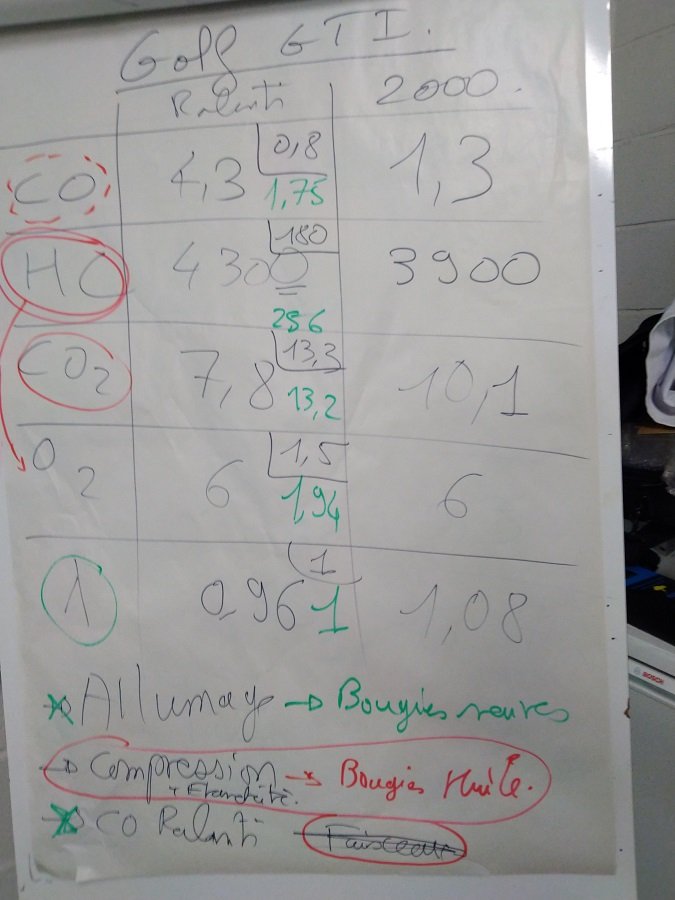 Golf GTI.
Ralenti 2000.
CO 4,3 0,8 1,75 1,3
HC 4300 180 256 3900
CO2 7,8 13,3 13,2 10,1
O2 6 1,5 1,94 6
λ 0,96 1 1 1,08
x Allumage → Bougies neuves
→ Compression → Bougies Huile.
+ Etanchéité.
x CO Ralenti Faisceau
BOSCH